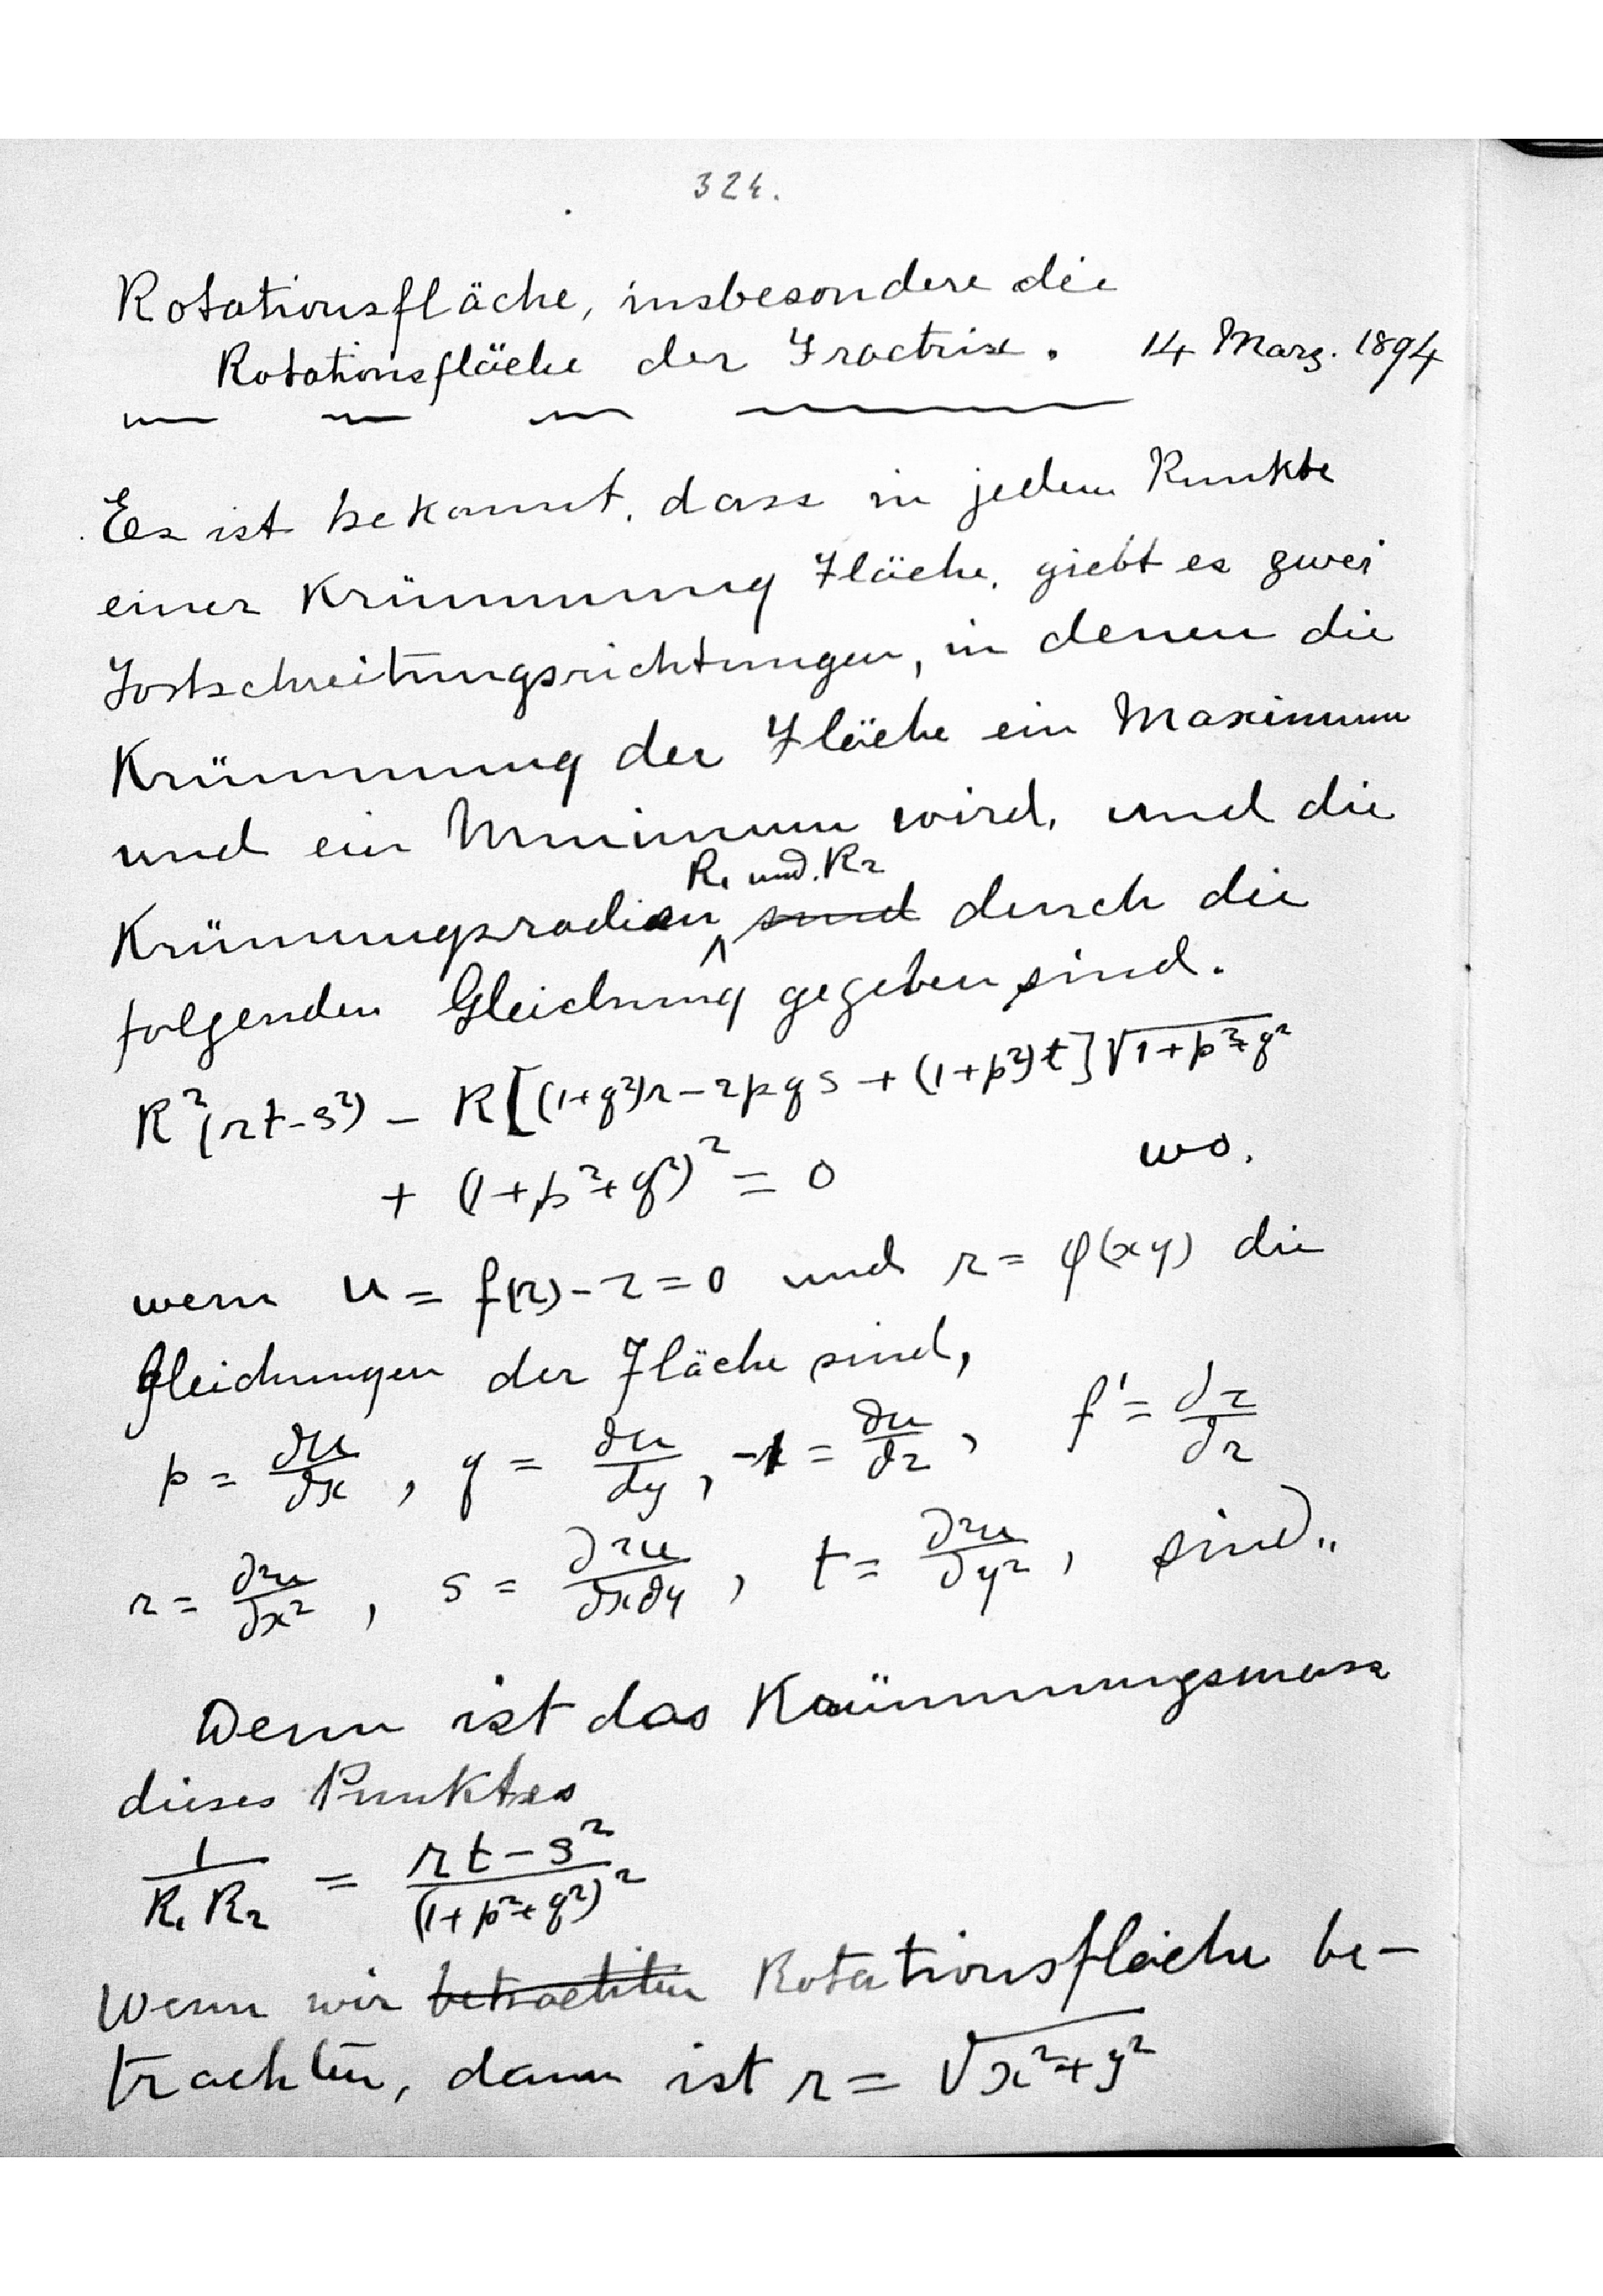 324.
Rotationsfläche, insbesondere die
Rotationsfläche der Tractrix. 14 März. 1894
Es ist bekannt, dass in jedem Punkte
einer Krümmung Fläche, giebt es zwei
Fortschreitungsrichtungen, in denen die
Krümmung der Fläche ein Maximum
und ein Minimum wird, und die
R₁ und R₂
Krümmungsradien ∧ sind durch die
folgenden Gleichung gegeben sind.
R²(rt-s²) - R[(1+q²)r-2pqs+(1+p²)t]√1+p²+q²
+ (1+p²+q²)² = 0 wo.
wenn u = f(r)-z=0 und r = φ(xy) die
Gleichungen der Fläche sind,
p = ∂u/∂x, q = ∂u/∂y, -1 = ∂u/∂z, f' = ∂z/∂r
r = ∂²u/∂x², s = ∂²u/∂x∂y, t = ∂²u/∂y², sind..
Denn ist das Krümmungsmass
dieses Punktes
1/R₁R₂ = rt-s²/(1+p²+q²)²
Wenn wir betrachten Rotationsfläche be-
trachten, dann ist r = √x²+y²